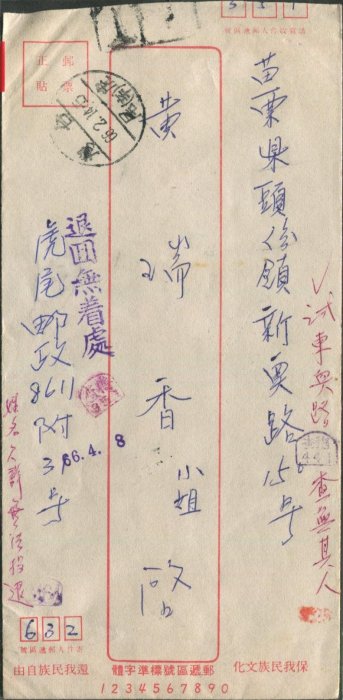 351
收件人郵遞區號
苗栗県頭份鎮新興路15号
✓試東興路
查無其人
黄瑞香小姐 啟
正貼郵票
66.2.14
退回無着處
66.4.8
虎尾郵政8611附3号
632
寄件人郵遞區號
保我民族文化
郵遞區號標準字體
還我民族自由
1234567890